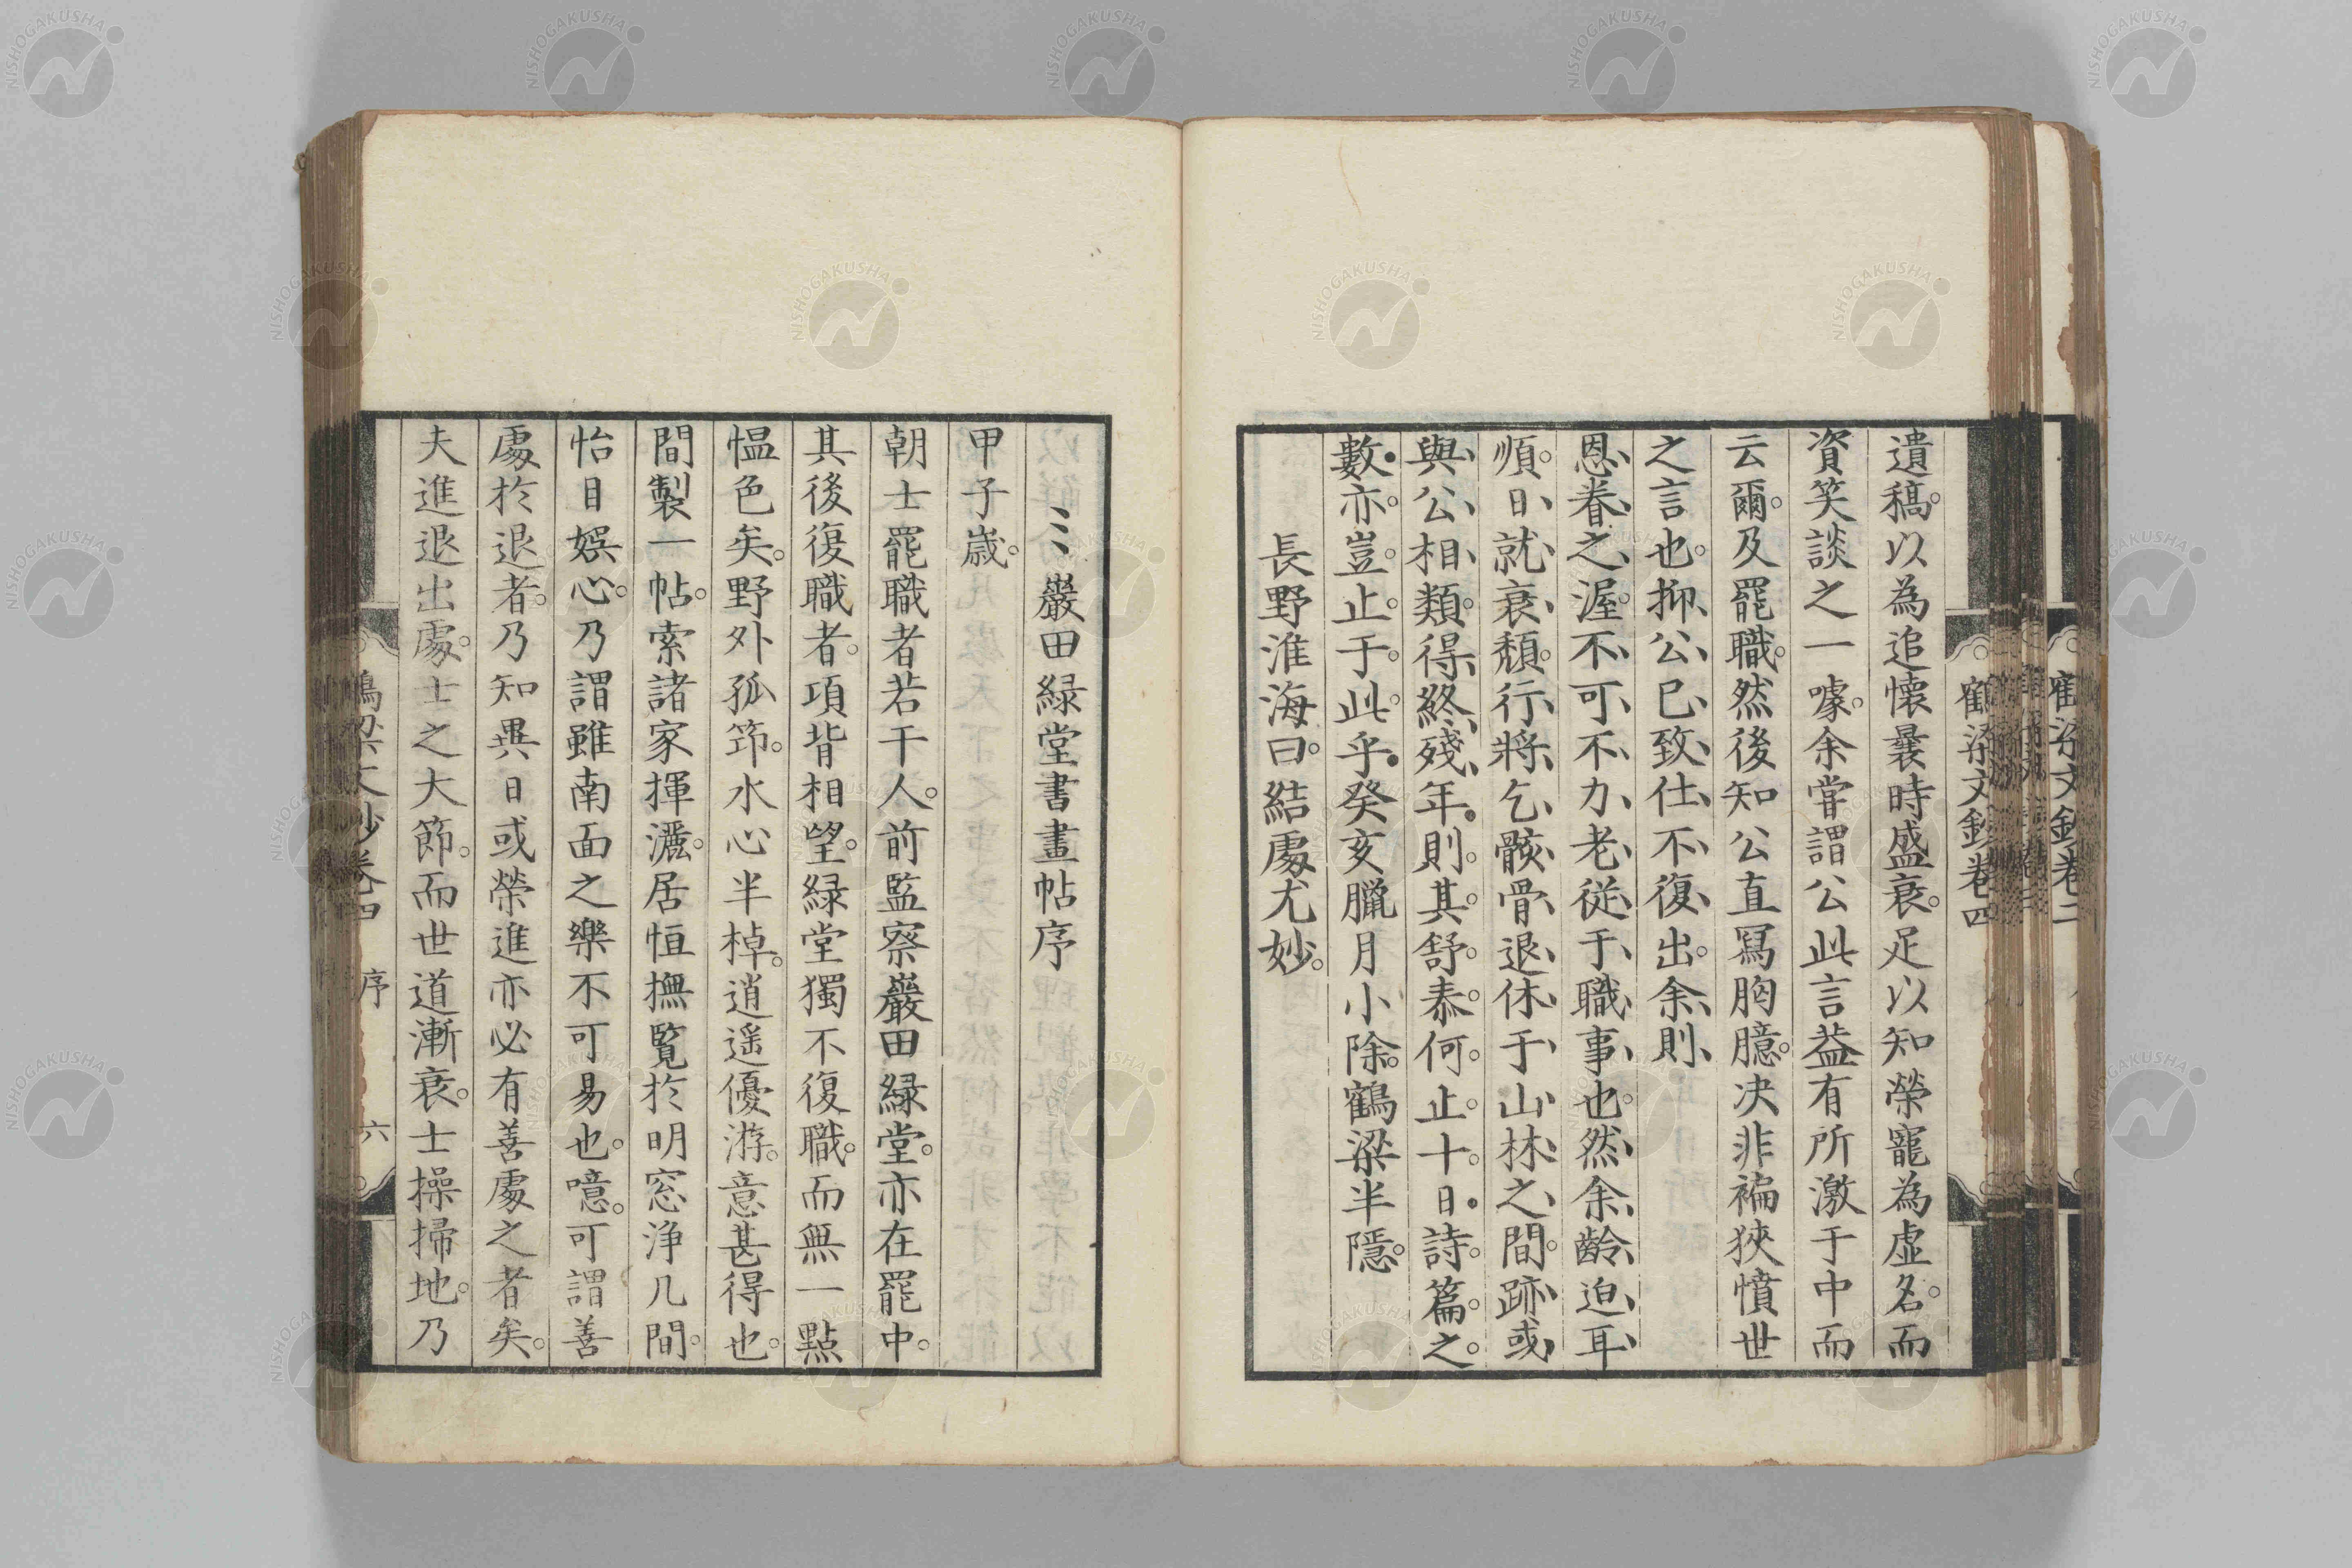 遺稿。以為追懷曩時盛衰。足以知榮寵為虛名。而
資笑談之一噱。余嘗謂公此言益有所激于中而
云爾。及罷職。然後知公直寫胸臆。决非褊狹憤世
之言也。抑、公、已、致、仕、不、復、出。余、則、
恩、眷、之、渥。不、可、不、力、老、從、于、職、事、也。然、余、齡、迫、耳、
順。日、就、衰、頹。行、將、乞、骸、骨、退、休、于、山、林、之、間。跡、或、
與、公、相、類。得、終、殘、年。則。其。舒。泰。何。止。十。日。詩。篇。之。
數。亦。豈。止。于。此。乎。癸亥臘月小除。鶴梁半隱。
長野淮海曰。結處尤妙。
鶴梁文鈔卷四
鶴梁文鈔卷二
巖田緑堂書畫帖序
甲子歳。
朝士罷職者若干人。前監察巖田緑堂。亦在罷中。
其後復職者。項背相望。緑堂獨不復職。而無一點
愠色矣。野外孤筇。水心半棹。逍遥優游。意甚得也。
間製一帖。索諸家揮灑。居恒撫覧於明窓浄几間。
怡目娯心。乃謂雖南面之樂不可易也。噫。可謂善
處於退者。乃知異日或榮進亦必有善處之者矣。
夫進退出處。士之大節。而世道漸衰。士操掃地。乃
鶴梁文鈔卷四 序 六
NISHOGAKUSHA